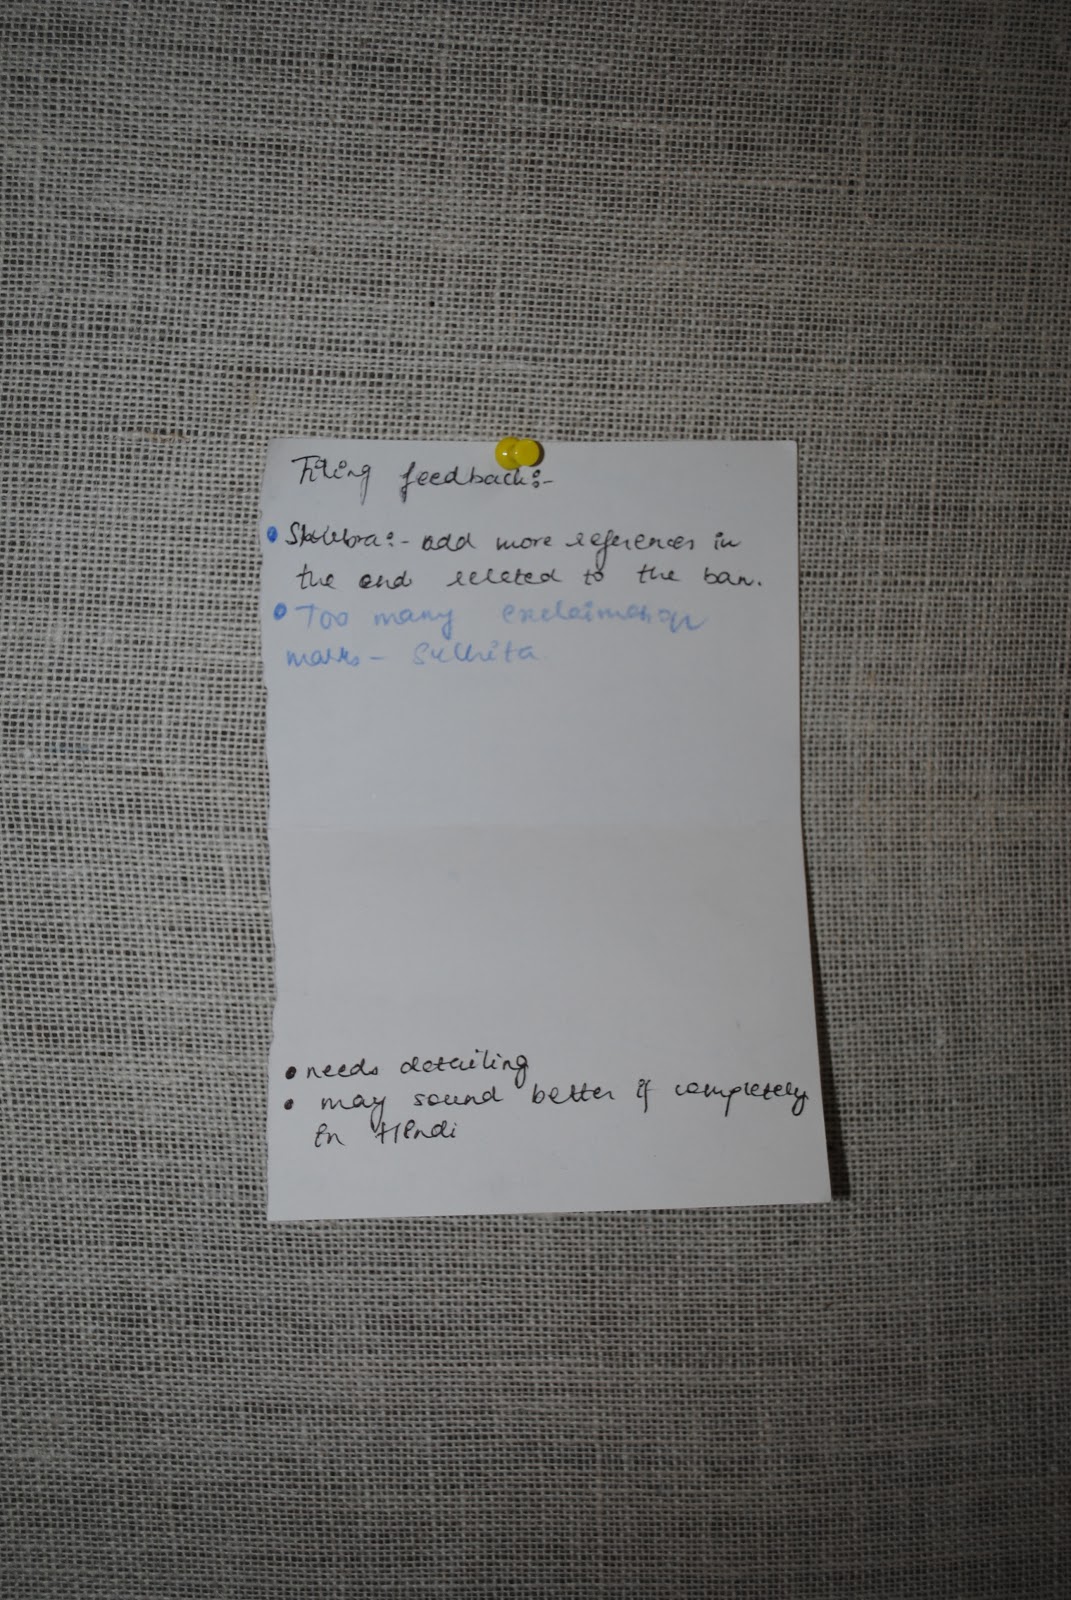 feedback:-
• :- add more references in
the end related to the ban.
• Too many exclaimation
marks - Suchita
• needs detailing
• may sound better if completely
in Hindi